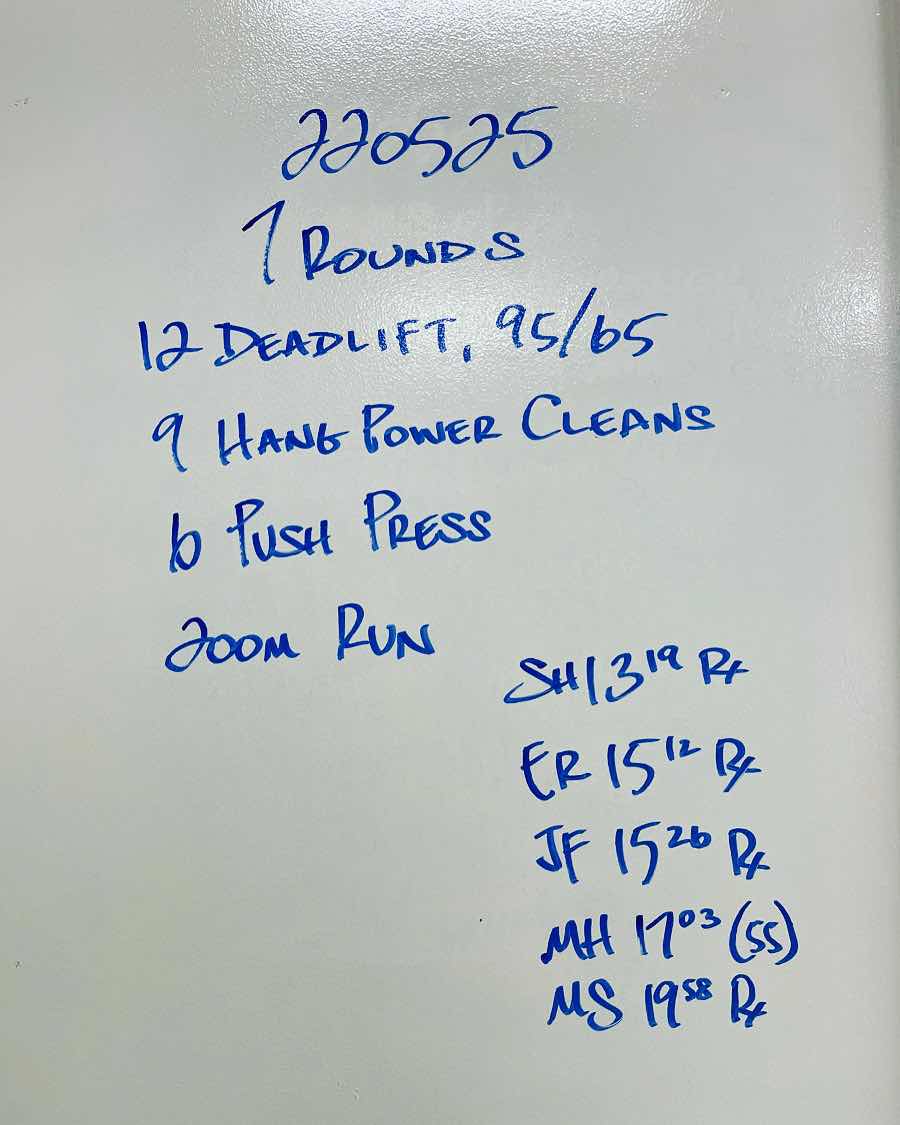 220525
7 ROUNDS
12 DEADLIFT, 95/65
9 HANG POWER CLEANS
6 PUSH PRESS
200M RUN
SH 13¹⁹ Rx
ER 15¹² Rx
JF 15²⁶ Rx
MH 17⁰³ (55)
MS 19⁵⁸ Rx